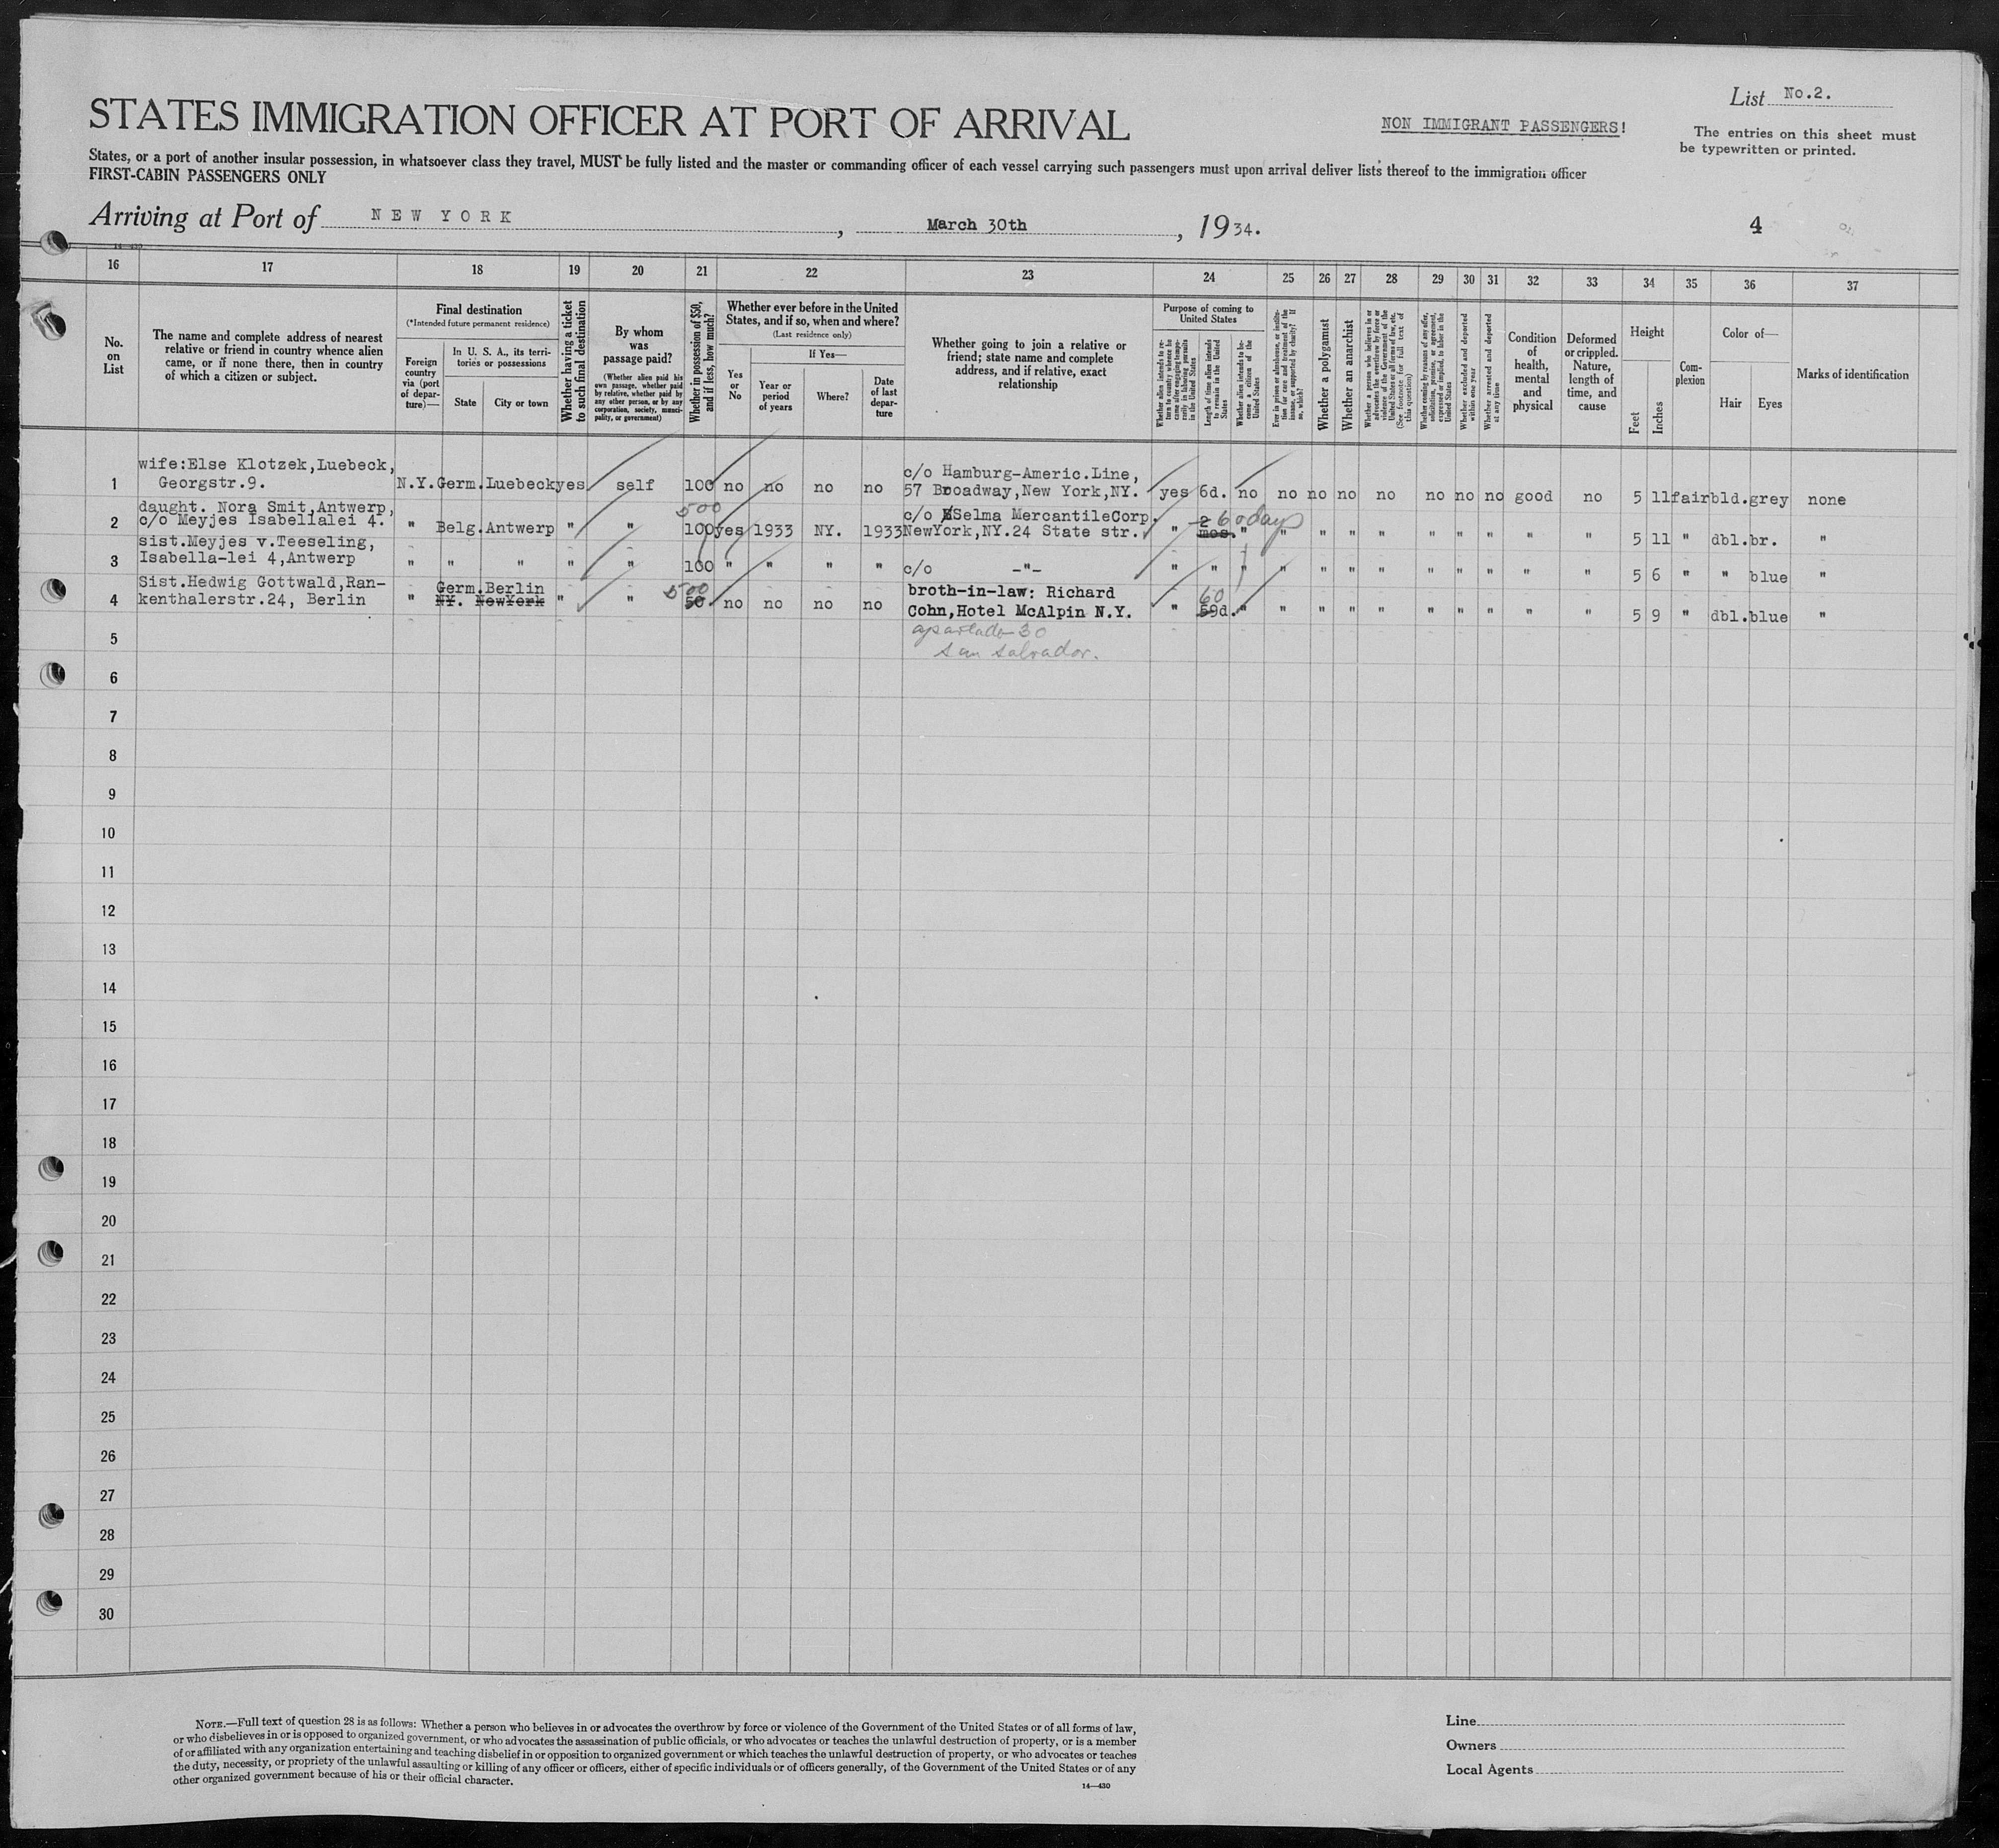 List No.2.
STATES IMMIGRATION OFFICER AT PORT OF ARRIVAL
NON IMMIGRANT PASSENGERS!
The entries on this sheet must
be typewritten or printed.
States, or a port of another insular possession, in whatsoever class they travel, MUST be fully listed and the master or commanding officer of each vessel carrying such passengers must upon arrival deliver lists thereof to the immigration officer
FIRST-CABIN PASSENGERS ONLY
Arriving at Port of NEW YORK, March 30th, 1934.
4
16 17 18 19 20 21 22 23 24 25 26 27 28 29 30 31 32 33 34 35 36 37
No. on List
The name and complete address of nearest
relative or friend in country whence alien
came, or if none there, then in country
of which a citizen or subject.
Final destination
(*Intended future permanent residence)
Foreign country via (port of departure)—
In U. S. A., its territories or possessions
State
City or town
Whether having a ticket to such final destination
By whom was passage paid?
(Whether alien paid his own passage, whether paid by relative, whether paid by any other person, or by any corporation, society, municipality, or government)
Whether in possession of $50, and if less, how much?
Whether ever before in the United
States, and if so, when and where?
(Last residence only)
Yes or No
If Yes—
Year or period of years
Where?
Date of last departure
Whether going to join a relative or
friend; state name and complete
address, and if relative, exact
relationship
Purpose of coming to United States
Whether alien intends to return to country whence he came after engaging temporarily in laboring pursuits in the United States
Length of time alien intends to remain in the United States
Whether alien intends to become a citizen of the United States
Ever in prison or almshouse, or institution for care and treatment of the insane, or supported by charity? If so, which?
Whether a polygamist
Whether an anarchist
Whether a person who believes in or advocates the overthrow by force or violence of the Government of the United States or all forms of law, etc. (See footnote for full text of this question)
Whether coming by reasons of any offer, solicitation, promise, or agreement, expressed or implied, to labor in the United States
Whether excluded and deported within one year
Whether arrested and deported at any time
Condition of health, mental and physical
Deformed or crippled. Nature, length of time, and cause
Height
Feet
Inches
Complexion
Color of—
Hair
Eyes
Marks of identification
wife:Else Klotzek,Luebeck, c/o Hamburg-Americ.Line,
1 Georgstr.9. N.Y. Germ. Luebeck yes self 100 no no no no 57 Broadway,New York,NY. yes 6d. no no no no no no no no good no 5 11 fair bld. grey none
daught. Nora Smit,Antwerp, 500 c/o Selma MercantileCorp. 2 60 days
2 c/o Meyjes Isabellalei 4. " Belg. Antwerp " " 100 yes 1933 NY. 1933 NewYork,NY.24 State str. " mos. " " " " " " " " " " 5 11 " dbl. br. "
sist.Meyjes v.Teeseling,
3 Isabella-lei 4,Antwerp " " " " " 100 " " " " c/o -"- " " " " " " " " " " " " 5 6 " " blue "
Sist.Hedwig Gottwald,Ran- Germ. Berlin 500 broth-in-law: Richard 60
4 kenthalerstr.24, Berlin " NY. NewYork " " 50 no no no no Cohn,Hotel McAlpin N.Y. " 59d. " " " " " " " " " " 5 9 " dbl. blue "
5 apartado 30
san salvador.
6
7
8
9
10
11
12
13
14
15
16
17
18
19
20
21
22
23
24
25
26
27
28
29
30
NOTE.—Full text of question 28 is as follows: Whether a person who believes in or advocates the overthrow by force or violence of the Government of the United States or of all forms of law,
or who disbelieves in or is opposed to organized government, or who advocates the assassination of public officials, or who advocates or teaches the unlawful destruction of property, or is a member
of or affiliated with any organization entertaining and teaching disbelief in or opposition to organized government or which teaches the unlawful destruction of property, or who advocates or teaches
the duty, necessity, or propriety of the unlawful assaulting or killing of any officer or officers, either of specific individuals or of officers generally, of the Government of the United States or of any
other organized government because of his or their official character.
14—430
Line
Owners
Local Agents